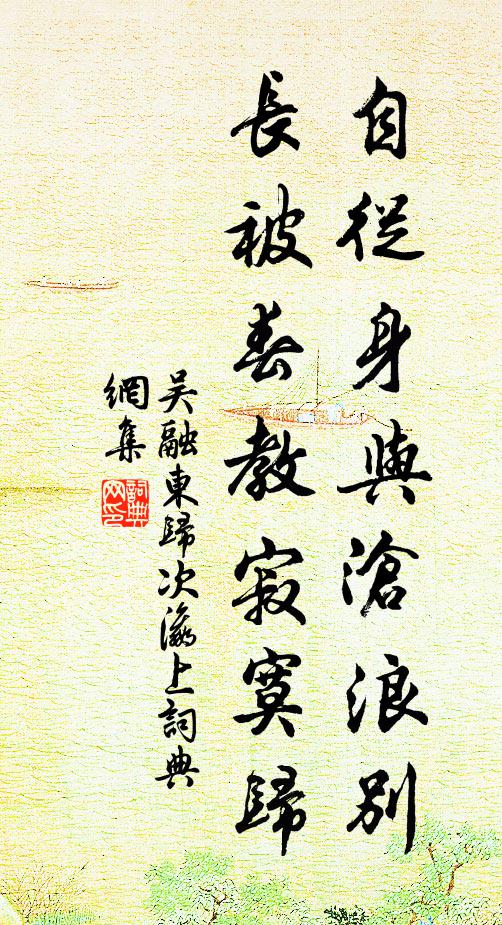 自從身與滄浪別
長被春教寂寞歸
吴融東歸次瀛上詞典
網集
詞典
网印